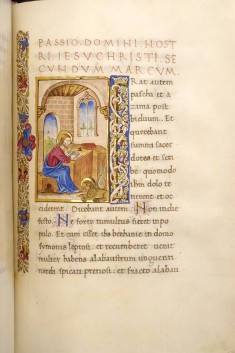 PASSIO. DOMINI. NOST
RI. IESU CHRISTI. SE
CUNDUM. MARCUM.
ERat autem
pascha et a
zima post
biduum. Et
querebant
summi sacer
dotes et scri
be quomodo
ihm dolo te
nerent et oc
ciderent. Dicebant autem. Non in die
festo. Ne forte tumultus fieret in po
pulo. Et cum esset ihs bethanie in domo
symonis leprosi. et recumberet. uenit
mulier habens alabaustrum unguenti
nardi spicati preciosi. et fracto alabau